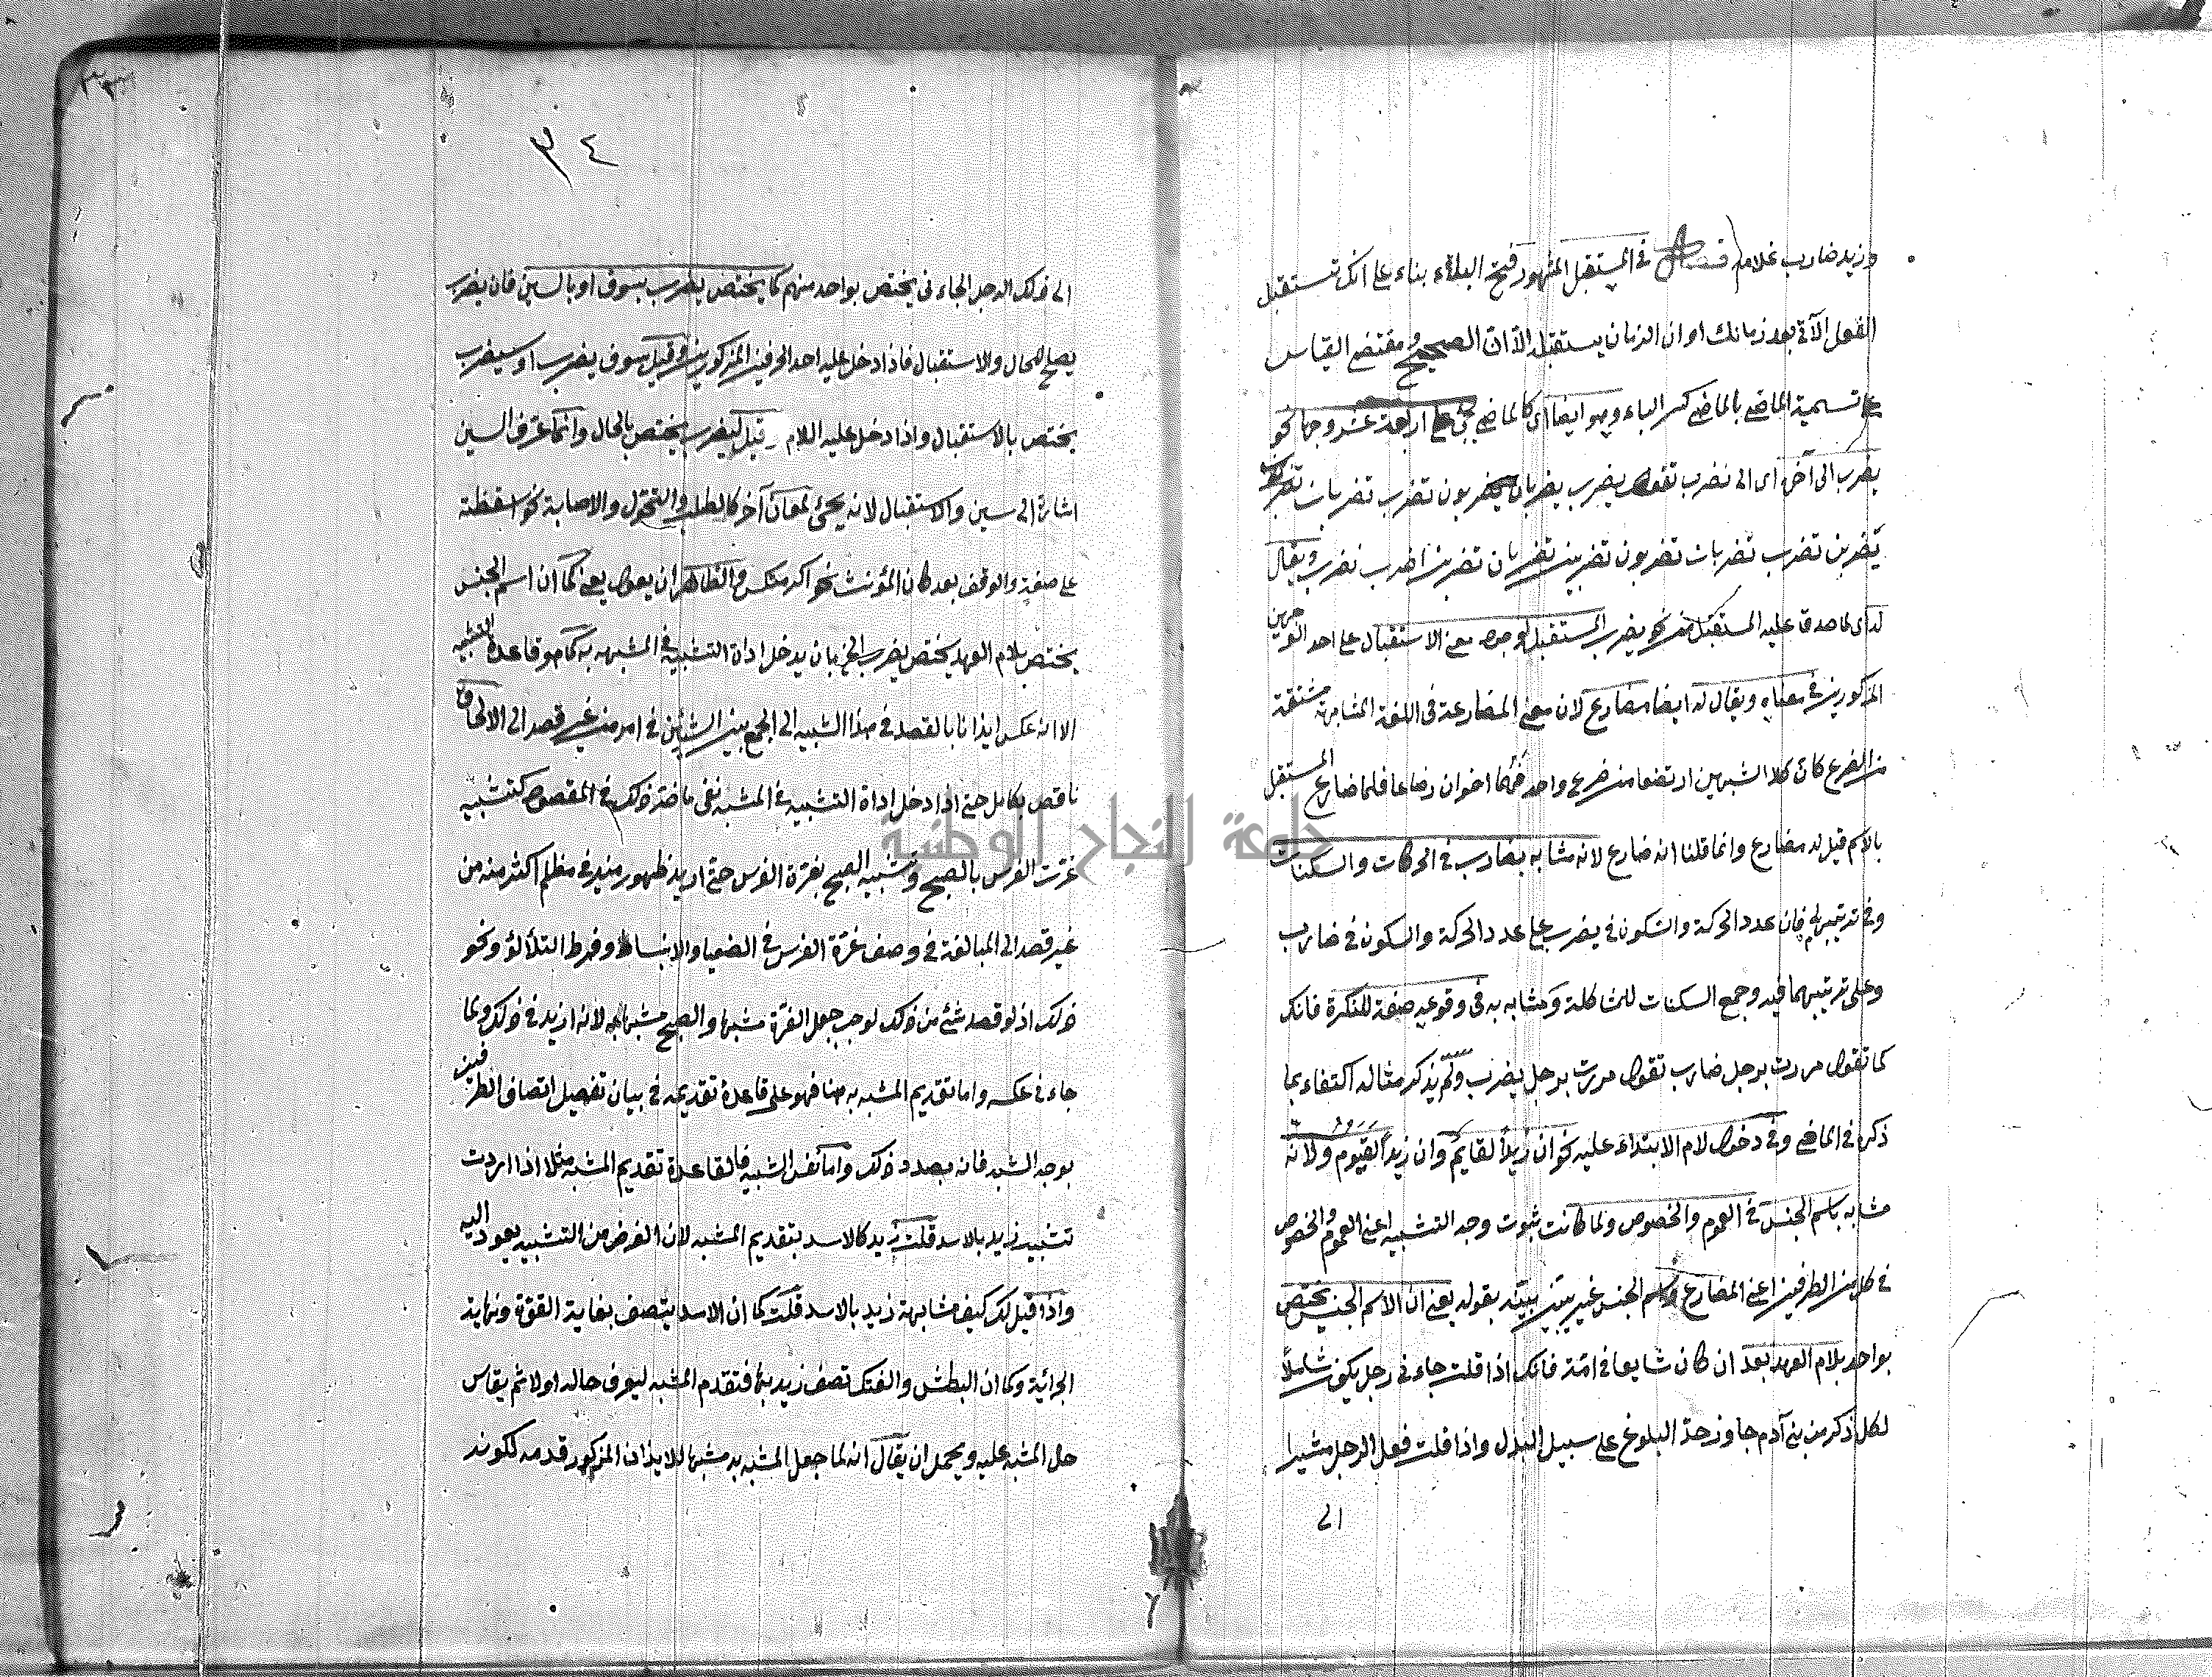 وزيد ضارب غلامه فصل في المستقبل المشهور فتح الباء بناء على انك تستقبل
الفعل الآتي بعد زمانك او ان الزمان يستقبله الآن الصحيح ومقتضى القياس
على تسمية الماضي بالماضي كسر الباء وهو ايضا اى كالماضي يجئ على اربعة عشر وجها نحو
يضرب الى آخره اى الى نضرب تقول يضرب يضربان يضربون تضرب تضربان
تضربن تضرب تضربان تضربون تضربين تضربان تضربن اضرب نضرب ويقال
له اى لما صدق عليه المستقبل من نحو يضرب المستقبل لوجود معنى الاستقبال على احد الوجهين
المذكورين في معناه ويقال له ايضا مضارع لان معنى المضارعة في اللغة المشابهة مشتقة
من الضرع كان كلا الشبهين ارتضعا من ضرع واحد فهما اخوان رضاعا فلما ضارع المستقبل
بالاسم قيل له مضارع وانما قلنا انه ضارع لانه مشابه بضارب في الحركات والسكنات
وفي ترتيبهم فان عدد الحركة والسكون في يضرب على عدد الحركة والسكون في ضارب
وعلى ترتيبهما فيه وجمع السكنات للمشاكلة ومشابه به في وقوعه صفة للنكرة فانك
كما تقول مررت برجل ضارب تقول مررت برجل يضرب ولم يذكر مثاله اكتفاء بما
ذكره في الماضي وفي دخول لام الابتداء عليه نحو ان زيدا لقايم وان زيدا ليقوم ولانه
مشابه باسم الجنس في العموم والخصوص ولما كانت ثبوت وجه التشبيه اعنى العموم والخصوص
في كل من الطرفين اعنى المضارع واسم الجنس غير بين بينه بقوله يعنى ان الاسم الجنس يختص
بواحد بلام العهد بعد ان كان شايعا في امته فانك اذا قلت جاءني رجل يكون شاملا
لكل ذكر من بني آدم جاوز حد البلوغ على سبيل البدل واذا قلت فعل الرجل مشيرا
الى
٣٤
الى ذلك الرجل الجاءني يختص بواحد منهم كما يختص يضرب بسوف او بالسين فان يضرب
يصلح للحال والاستقبال فاذا دخل عليه احد الحرفين المذكورين وقيل سوف يضرب او سيضرب
يختص بالاستقبال واذا دخل عليه اللام وقيل ليضرب يختص بالحال وانما عرف السين
اشارة الى سين والاستقبال لانه يجئ لمعان آخر كالطلب والتحول والاصابة نحو استفظته
على صفة والوقف بعد كان المؤنث نحو اكرمتكس والظاهر ان يقول يعني كما ان اسم الجنس
يختص بلام العهد يختص يضرب الخ بان يدخل اداة التشبيه في المشبه به كما هو قاعدة التشبيه
الا انه عكس ايذانا بالقصد في هذا التشبيه الى الجمع بين الشيئين في امر من غير قصد الى الالحاق
ناقص بكامل حتى اذا دخل اداة التشبيه في المشبه نفى ما ضد ذلك في المقصود كتشبيه
غرت الفرس بالصبح وتشبيه الصبح بغرة الفرس حتى اريد ظهور منير في مظلم اكثر منه من
غير قصد الى المبالغة في وصف غرة الفرس في الضياء والانبساط وفرط التلألؤ ونحو
ذلك اذ لو قصد شئ من ذلك لوجب جعل الغرة مشبها والصبح مشبها به لانه ازيد في ذلك ولما
جاء في عكسه واما تقديم المشبه به هنا فهو على قاعدة تقديمه في بيان تفصيل اتصاف الطرفين
بوجه الشبه فانه بصدد ذلك واما نفس الشبيه فالقاعدة تقديم المشبه مثلا اذا اردت
تشبيه زيد بالاسد قلت زيد كالاسد بتقديم المشبه لان الغرض من التشبيه يعود اليه
واذا قيل لك كيف مشابهة زيد بالاسد قلت كما ان الاسد يتصف بغاية القوة ونهاية
الجرائة وكان البطش والفتك تصف زيد بها فتقدم المشبه ليعرف حاله اولا ثم يقاس
حال المشبه عليه ويحمل ان يقال انه لما جعل المشبه به مشبها للايذان المذكور قدمه لكونه
جامعة النجاح الوطنية